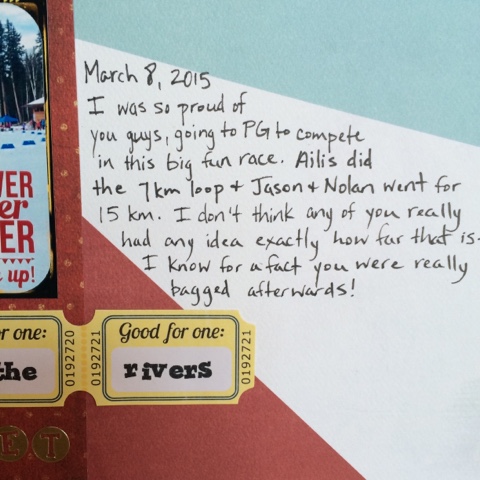 March 8, 2015
I was so proud of
you guys, going to PG to compete
in this big fun race. Ailis did
the 7km loop + Jason + Nolan went for
15 km. I don't think any of you really
had any idea exactly how far that is.
I know for a fact you were really
bagged afterwards!
VER
er
ER
up!
or one:
the
0192720
0192721
Good for one:
rivers
0192721
ET